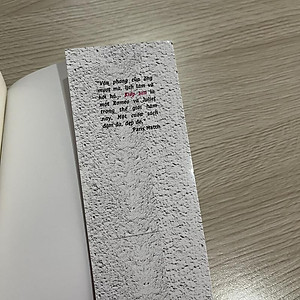 "Văn phong của ông
mượt mà, lịch lãm và
hối hả... Kiếp sau là
một Romeo và Juliet
trong thế giới hiện
nay. Một cuốn sách
đậm đà, đẹp đẽ."
Paris Match